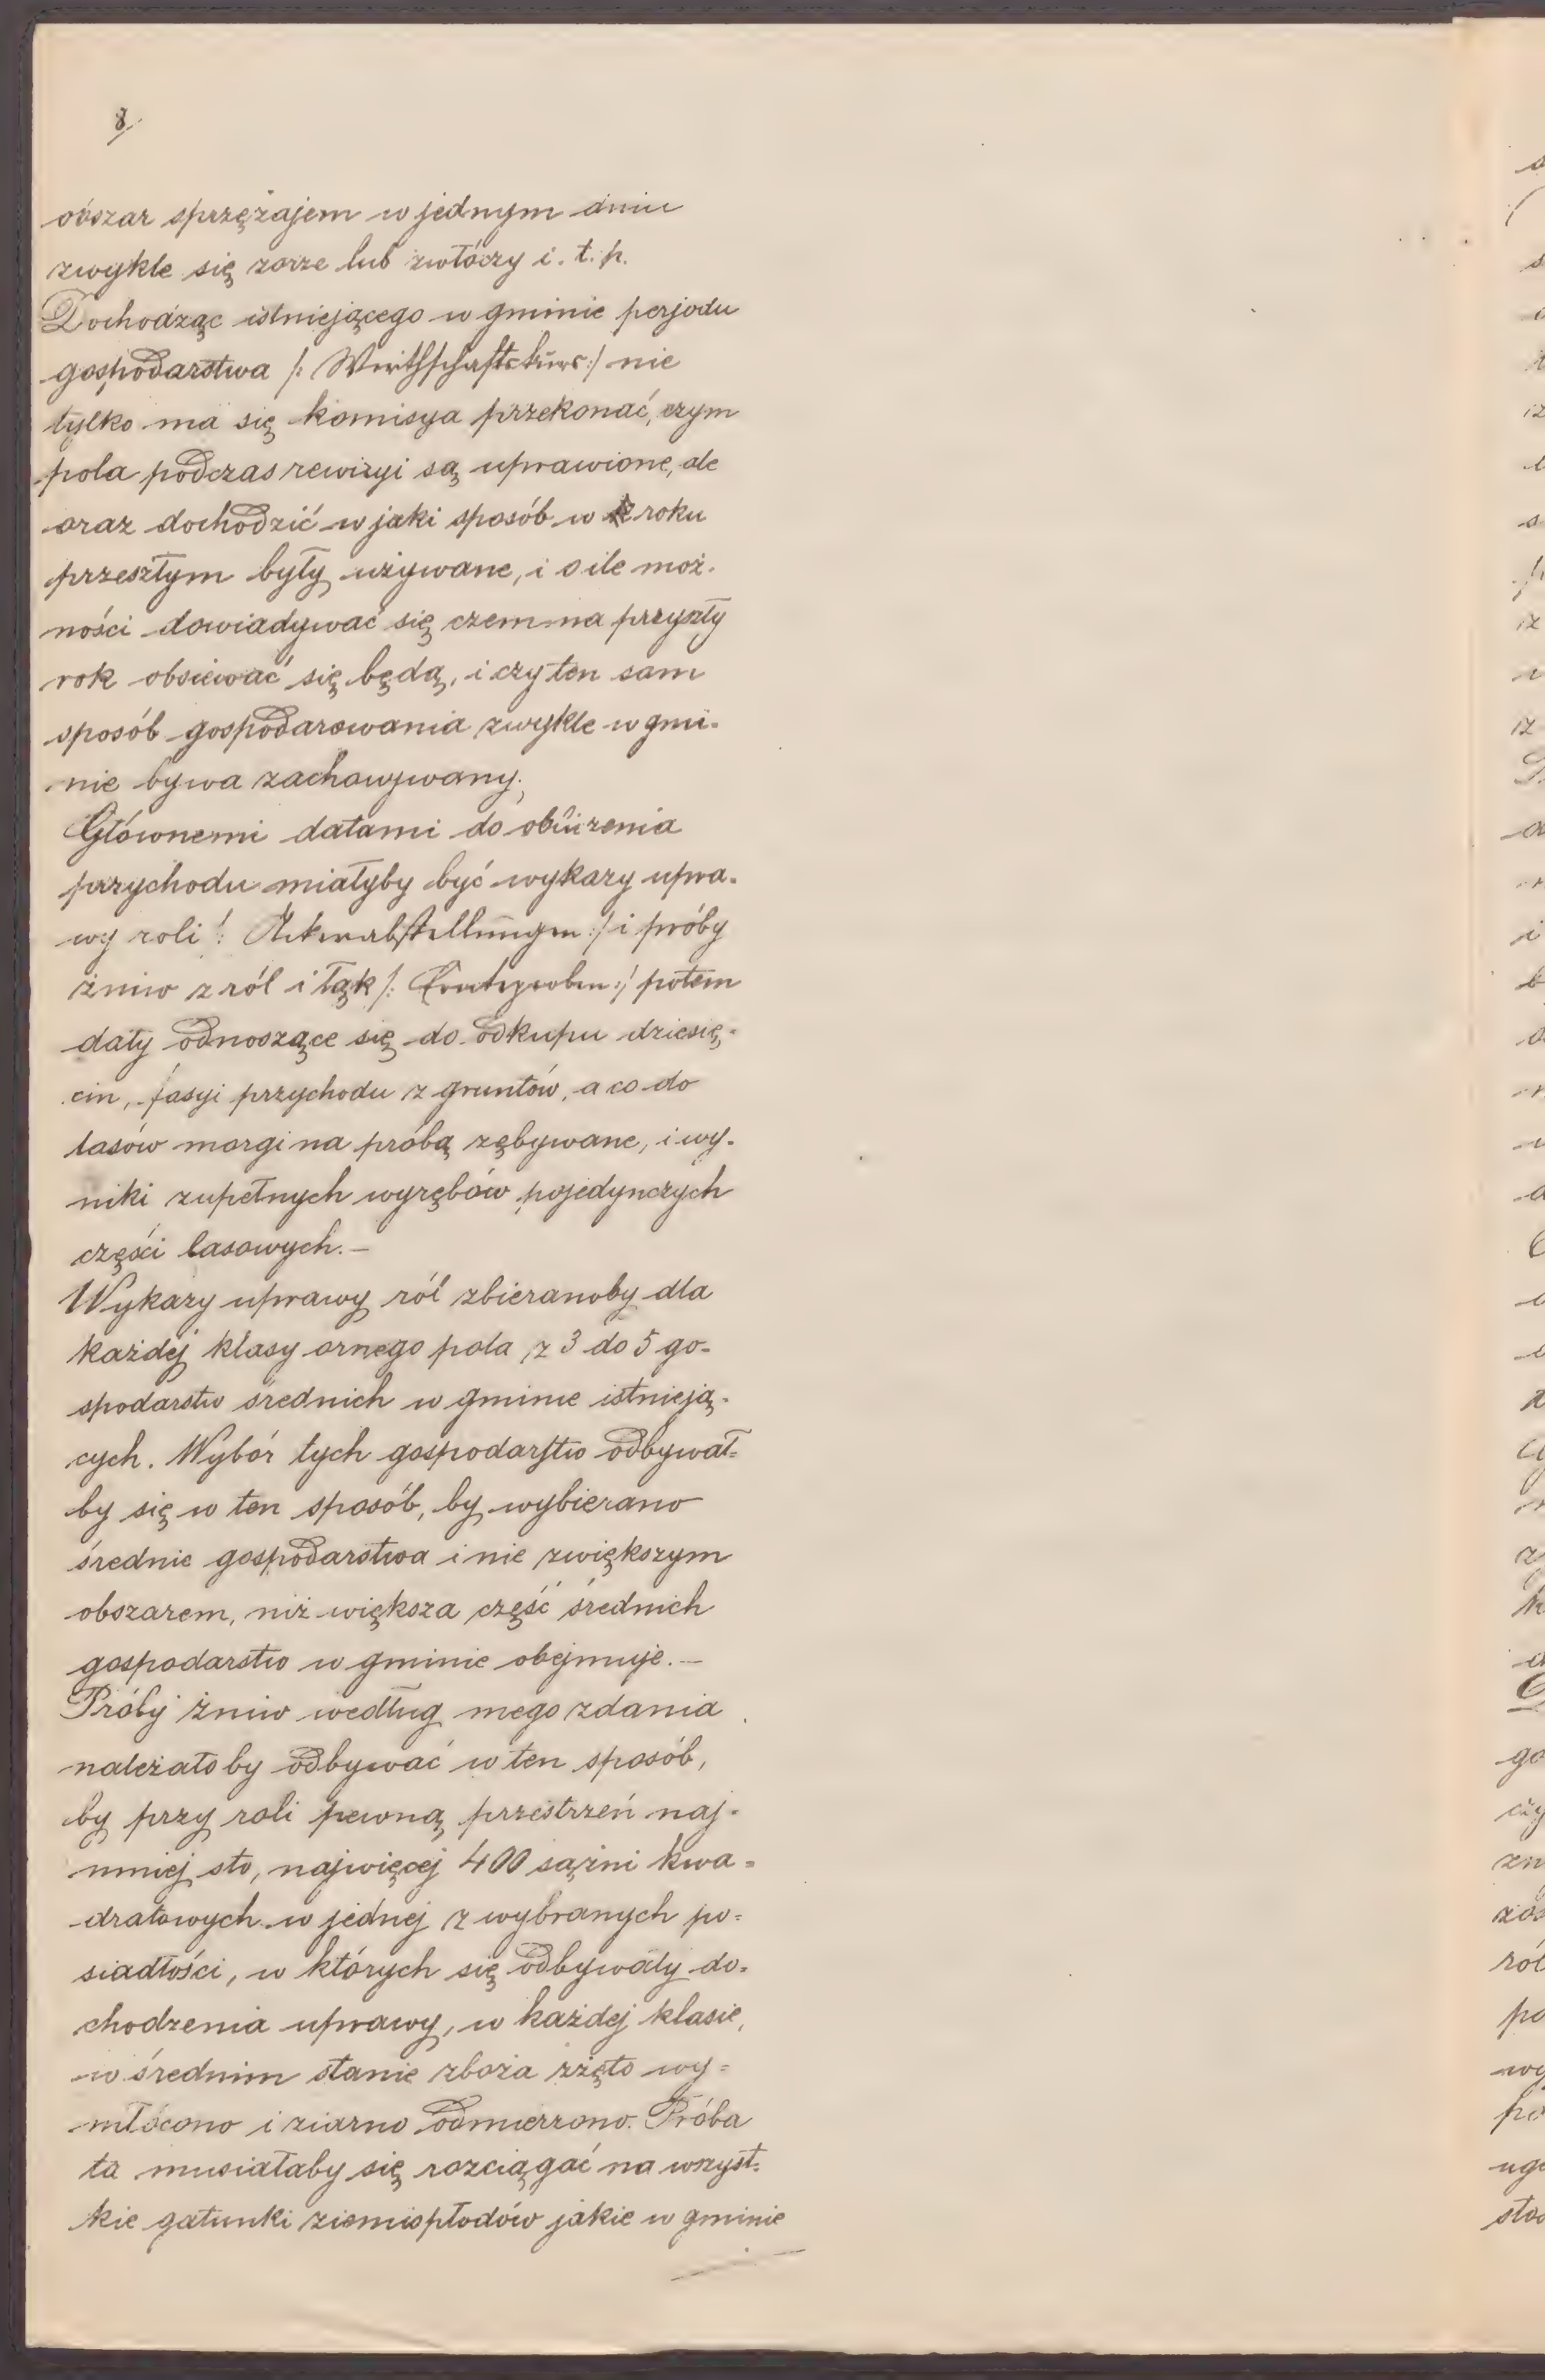 8/
obszar sprzężajem w jednym dniu
zwykle się zorze lub zwłóczy i. t. p.
Dochodząc istniejącego w gminie perjodu
gospodarstwa /: Wirthschaftskurs :/ nie
tylko ma się komisya przekonać, czym
pola podczas rewizyi są uprawione, ale
oraz dochodzić w jaki sposób w roku
przeszłym były używane, i o ile moż-
ności dowiadywać się czem na przyszły
rok obsiewać się będą, i czy ten sam
sposób gospodarowania zwykle w gmi-
nie bywa zachowywany.
Głównemi datami do obliczenia
przychodu miałyby być wykazy upra-
wy roli /: Ackerabstellungen :/ i próby
żniw z ról i łąk /: Ernteproben :/ potem
daty odnoszące się do odkupu dziesię-
cin, fasyi przychodu z gruntów, a co do
lasów morgi na próbą zębywane, i wy-
niki zupełnych wyrębów pojedynczych
części lasowych.—
Wykazy uprawy ról zbieranoby dla
każdej klasy ornego pola z 3 do 5 go-
spodarstw średnich w gminie istnieją-
cych. Wybór tych gospodarstw odbywał-
by się w ten sposób, by wybierano
średnie gospodarstwa i nie zwiększym
obszarem, niż większa część średnich
gospodarstw w gminie obejmuje.—
Próby żniw według mego zdania
należałoby odbywać w ten sposób,
by przy roli pewną przestrzeń naj-
mniej sto, najwięcej 400 sążni kwa-
dratowych w jednej z wybranych po-
siadłości, w których się odbywały do-
chodzenia uprawy, w każdej klasie,
w średnim stanie zboża zżęto wy-
młócono i ziarno odmierzono. Próba
ta musiałaby się rozciągać na wszyst-
kie gatunki ziemiopłodów jakie w gminie